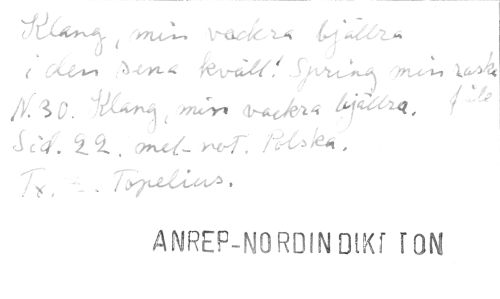 Klang, min vackra bjällra
i den sena kväll! Spring min raske
N.30. Klang, min vackra bjällra. fåle
Sid. 22. mel-not. Polska.
Tx. Z. Topelius.
ANREP-NORDIN DIKT TON